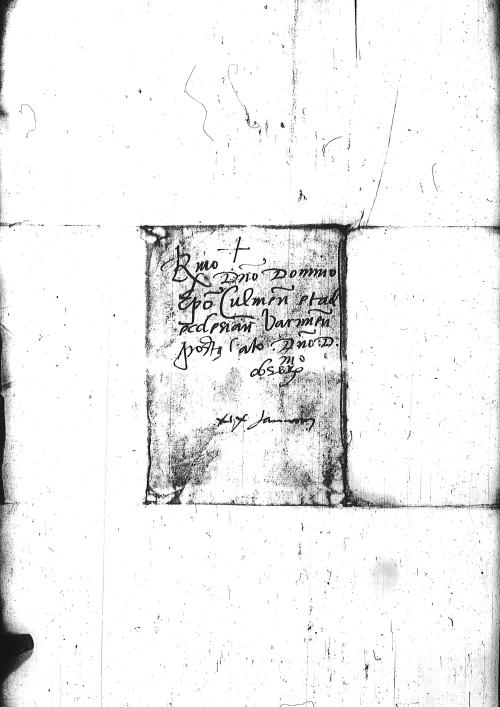 +
Rmo Dño Domino
Epõ Culmeñ et ad
ecclesiam Varmieñ
postulato Dño D.
obser mo
xix Januarij